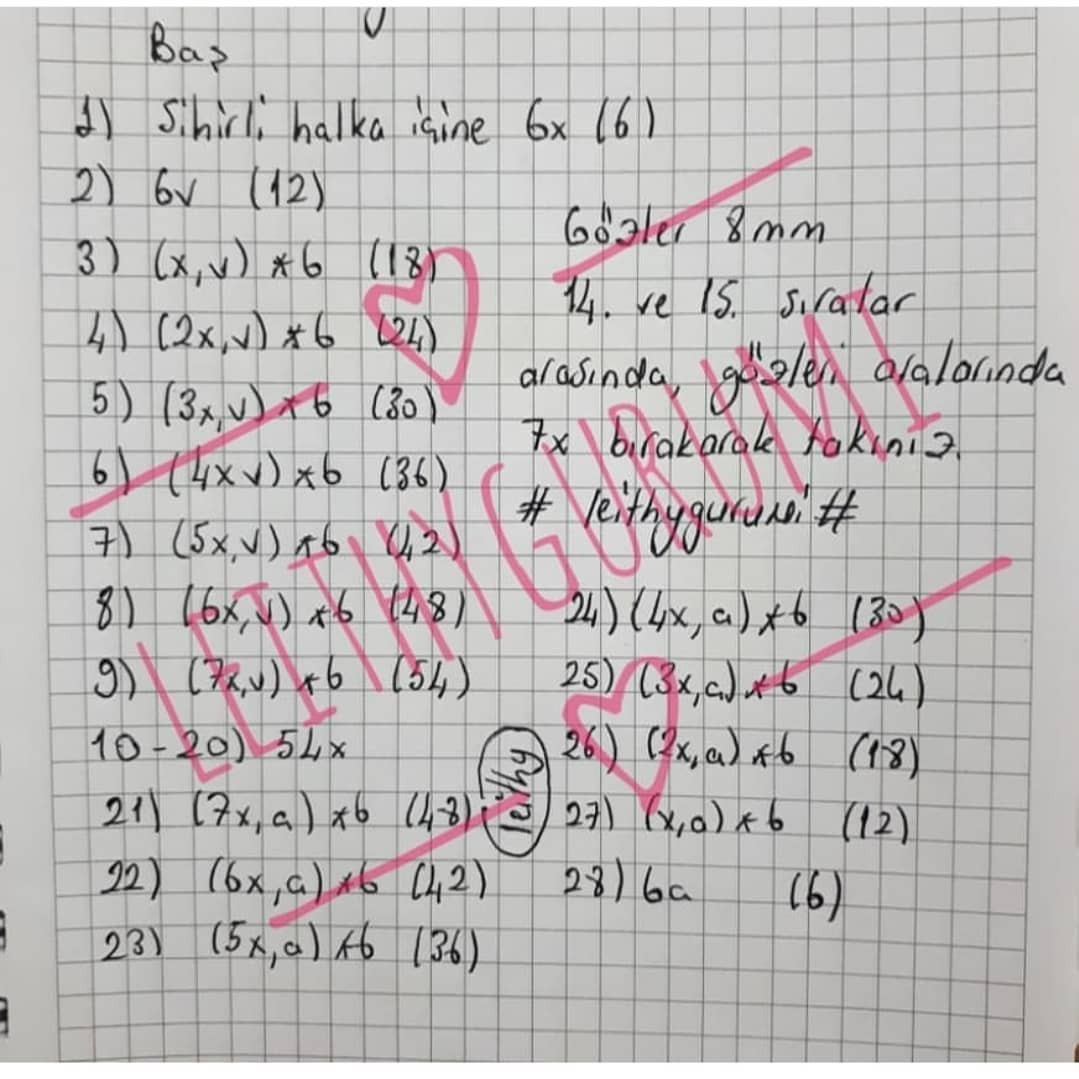 Baş
1) Sihirli halka içine 6x (6)
2) 6v (12)
3) (x,v) *6 (18)
4) (2x,v) *6 (24)
5) (3x,v) *6 (30)
6) (4x v) *6 (36)
7) (5x,v) *6 (42)
8) (6x,v) *6 (48)
9) (7x,v) *6 (54)
10-20) 54x
21) (7x,a) *6 (48)
22) (6x,a) *6 (42)
23) (5x,a) *6 (36)
Gözler 8mm
14. ve 15. sıralar
arasında, gözleri aralarında
7x bırakarak takınız.
# leithygurumi #
24) (4x,a) *6 (30)
25) (3x,a) *6 (24)
26) (2x,a) *6 (18)
27) (x,a) *6 (12)
28) 6a (6)
leithy
LEITHYGURUMI